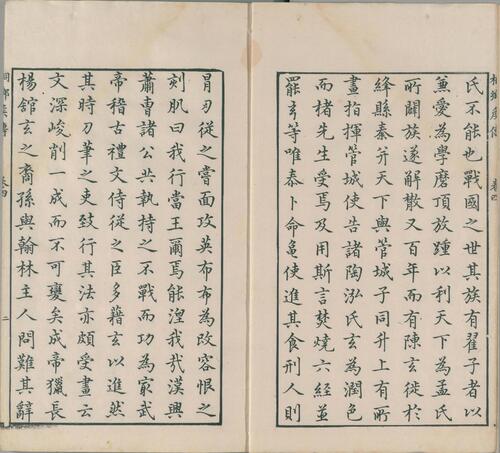 氏不能也戰國之世其族有翟子者以
兼愛為學磨頂放踵以利天下為孟氏
所闢族遂解散又百年而有陳玄徙於
絳縣秦并天下與管城子同升上有所
畫指揮管城使告諸陶泓氏玄為潤色
而楮先生受焉及用斯言焚燒六經並
罷玄等唯泰卜命龜使進其食刑人則
冐刃從之嘗面攻英布布為改容恨之
刻肌曰我行當王爾焉能湼我哉漢興
蕭曹諸公共執持之不戰而功為㝡武
帝稽古禮文侍從之臣多藉玄以進然
其時刀筆之吏致行其法亦頗受畫云
文深峻削一成而不可變矣成帝獵長
楊舘玄之裔孫與翰林主人問難其辭
卷四
二